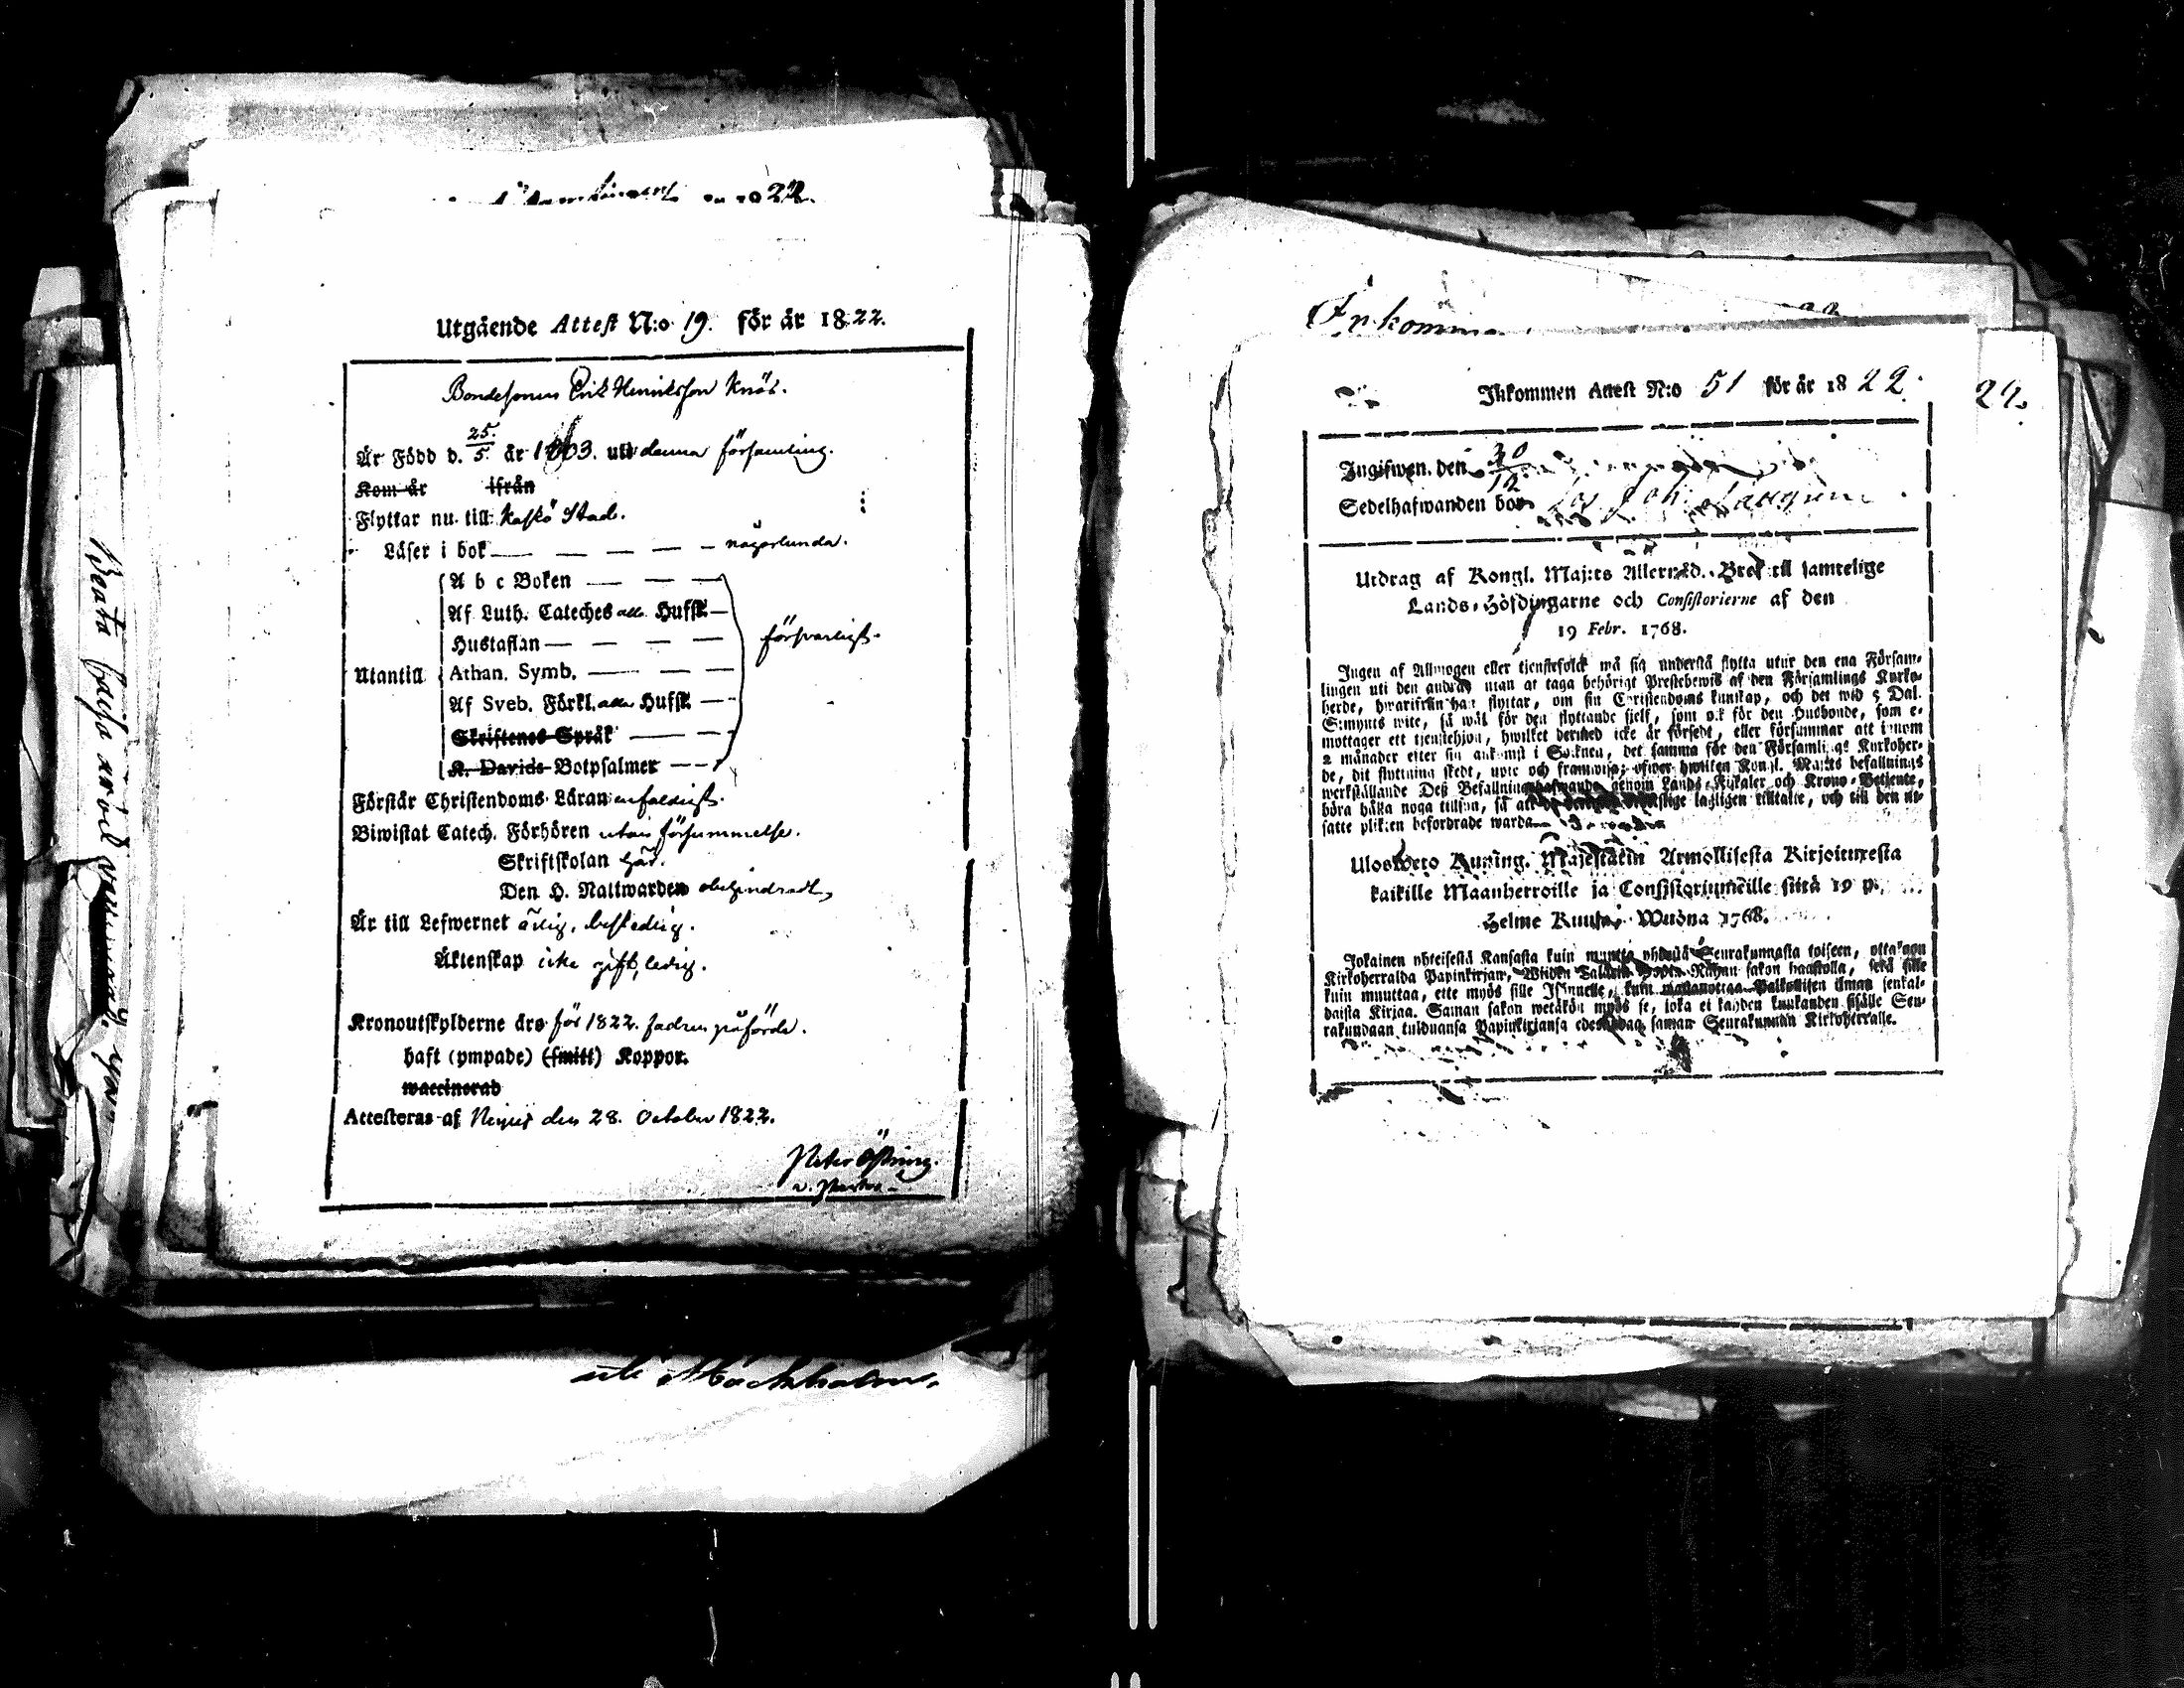 1822.
Utgående Attest N:o 19. för år 1822.
Bondesonen Erik Henriksson Knös.
Är Född d. 25/5. år 1803. uti denna församling.
Kom år ifrån
Flyttar nu till Kaskö Stad.
Läser i bok — — — — någorlunda.
A b c Boken — — —
Af Luth. Cateches Hufst. —
Hustaflan — — — —
försvarligt.
Utantill Athan. Symb. — — —
Af Sveb. Förkl. Hufst. — -
Skriftenes Språk — — -
K. Davids Botpsalmer — -
Förstår Christendoms Läran enfaldigt.
Biwistat Catech. Förhören utan försummelse.
Skriftskolan här.
Den H. Nattwarden obehindradt,
Är till Lefwernet ärlig, beskedlig.
Äktenskap icke gift, ledig.
Kronoutskylderne äro för 1822. fadren påförde.
haft (ympade) (smitt) Koppor.
waccinerad
Attesteras af Nerpes den 28. October 1822.
Peter Östring.
v. Pastor
Beata Cajsa
Stockholm.
Inkommen
Inkommen Attest N:o 51 för år 1822.
22.
Ingifwen den 30/12
Sedelhafwanden bor hos Joh.
Utdrag af Kongl. Maj:ts Allernåd. Bref till samtelige
Lands-Höfdingarne och Consistorierne af den
19 Febr. 1768.
Ingen af Allmogen eller tienstefolck må sig understå flytta utur den ena Försam-
lingen uti den andra, utan at taga behörigt Prestebewis af den Församlings Kyrko-
herde, hwarifrån han flyttar, om sin Christendoms kunskap, och det wid 5 Dal.
S:mynts wite, så wäl för den flyttande sielf, som ock för den Husbonde, som e-
mottager ett tjenstehjon, hwilket dermed icke är försedt, eller försummar att innom
2 månader efter sin ankomst i Soknen, det samma för den Församlings Kyrkoher-
de, dit flyttning skedt, upte och framwisa; öfwer hwilken Kongl. Maj:ts befallnings
werkställande Deß Befallningshafwande genom Lands-Fiskaler och Krono-Betjente,
böra hålla noga tillsyn, så att de lagligen tilltalte, och till den ut-
satte plikten befordrade warda.
Ulosweto Kuning. Majestätin Armollisesta Kirjoituxesta
kaikille Maanherroille ja Consistoriumeille siitä 19 p.
Helme Kuusa, Wuona 1768.
Jokainen yhteisestä Kansasta kuin muutta yhdestä Seurakunnasta toiseen, ottakoon
Kirkoherralda Papinkirjan, Wiiden Talarin Hopia Rahan sakon haastolla, sekä sille
kuin muuttaa, ette myös sille Isännelle, kuin wastanottaa Palkollisen ilman senkal-
daista Kirjaa. Saman sakon wetäköön myös se, joka ei kahden kuukauden sisälle Seu-
rakundaan tulduansa Papinkirjansa edeskanda saman Seurakunnan Kirkoherralle.